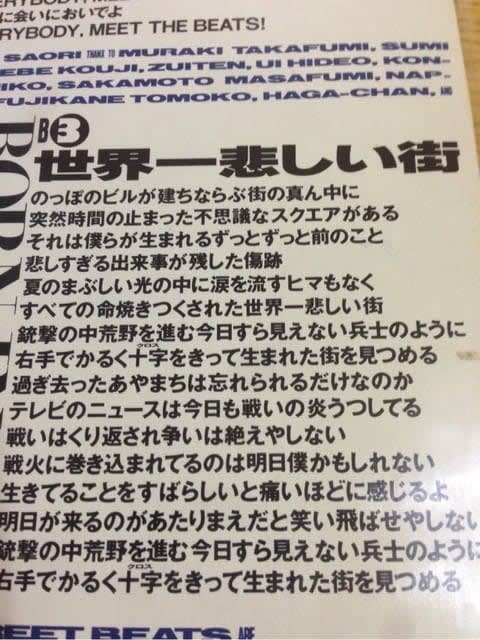 に会いにおいでよ
ERYBODY, MEET THE BEATS!
SAORI THANKS TO MURAKI TAKAFUMI, SUMI
EBE KOUJI, ZUITEN, UI HIDEO, KON-
IKO, SAKAMOTO MASAFUMI, NAP-
FUJIKANE TOMOKO, HAGA-CHAN,
B3
世界一悲しい街
のっぽのビルが建ちならぶ街の真ん中に
突然時間の止まった不思議なスクエアがある
それは僕らが生まれるずっとずっと前のこと
悲しすぎる出来事が残した傷跡
夏のまぶしい光の中に涙を流すヒマもなく
すべての命焼きつくされた世界一悲しい街
銃撃の中荒野を進む今日すら見えない兵士のように
クロス
右手でかるく十字をきって生まれた街を見つめる
過ぎ去ったあやまちは忘れられるだけなのか
テレビのニュースは今日も戦いの炎うつしてる
戦いはくり返され争いは絶えやしない
戦火に巻き込まれてるのは明日僕かもしれない
生きてることをすばらしいと痛いほどに感じるよ
明日が来るのがあたりまえだと笑い飛ばせやしない
銃撃の中荒野を進む今日すら見えない兵士のように
クロス
右手でかるく十字をきって生まれた街を見つめる
MEET BEATS ARE